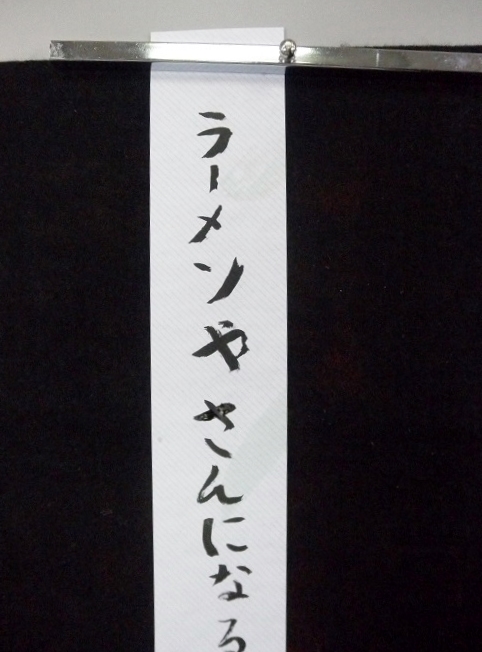 ラーメンやさんになる